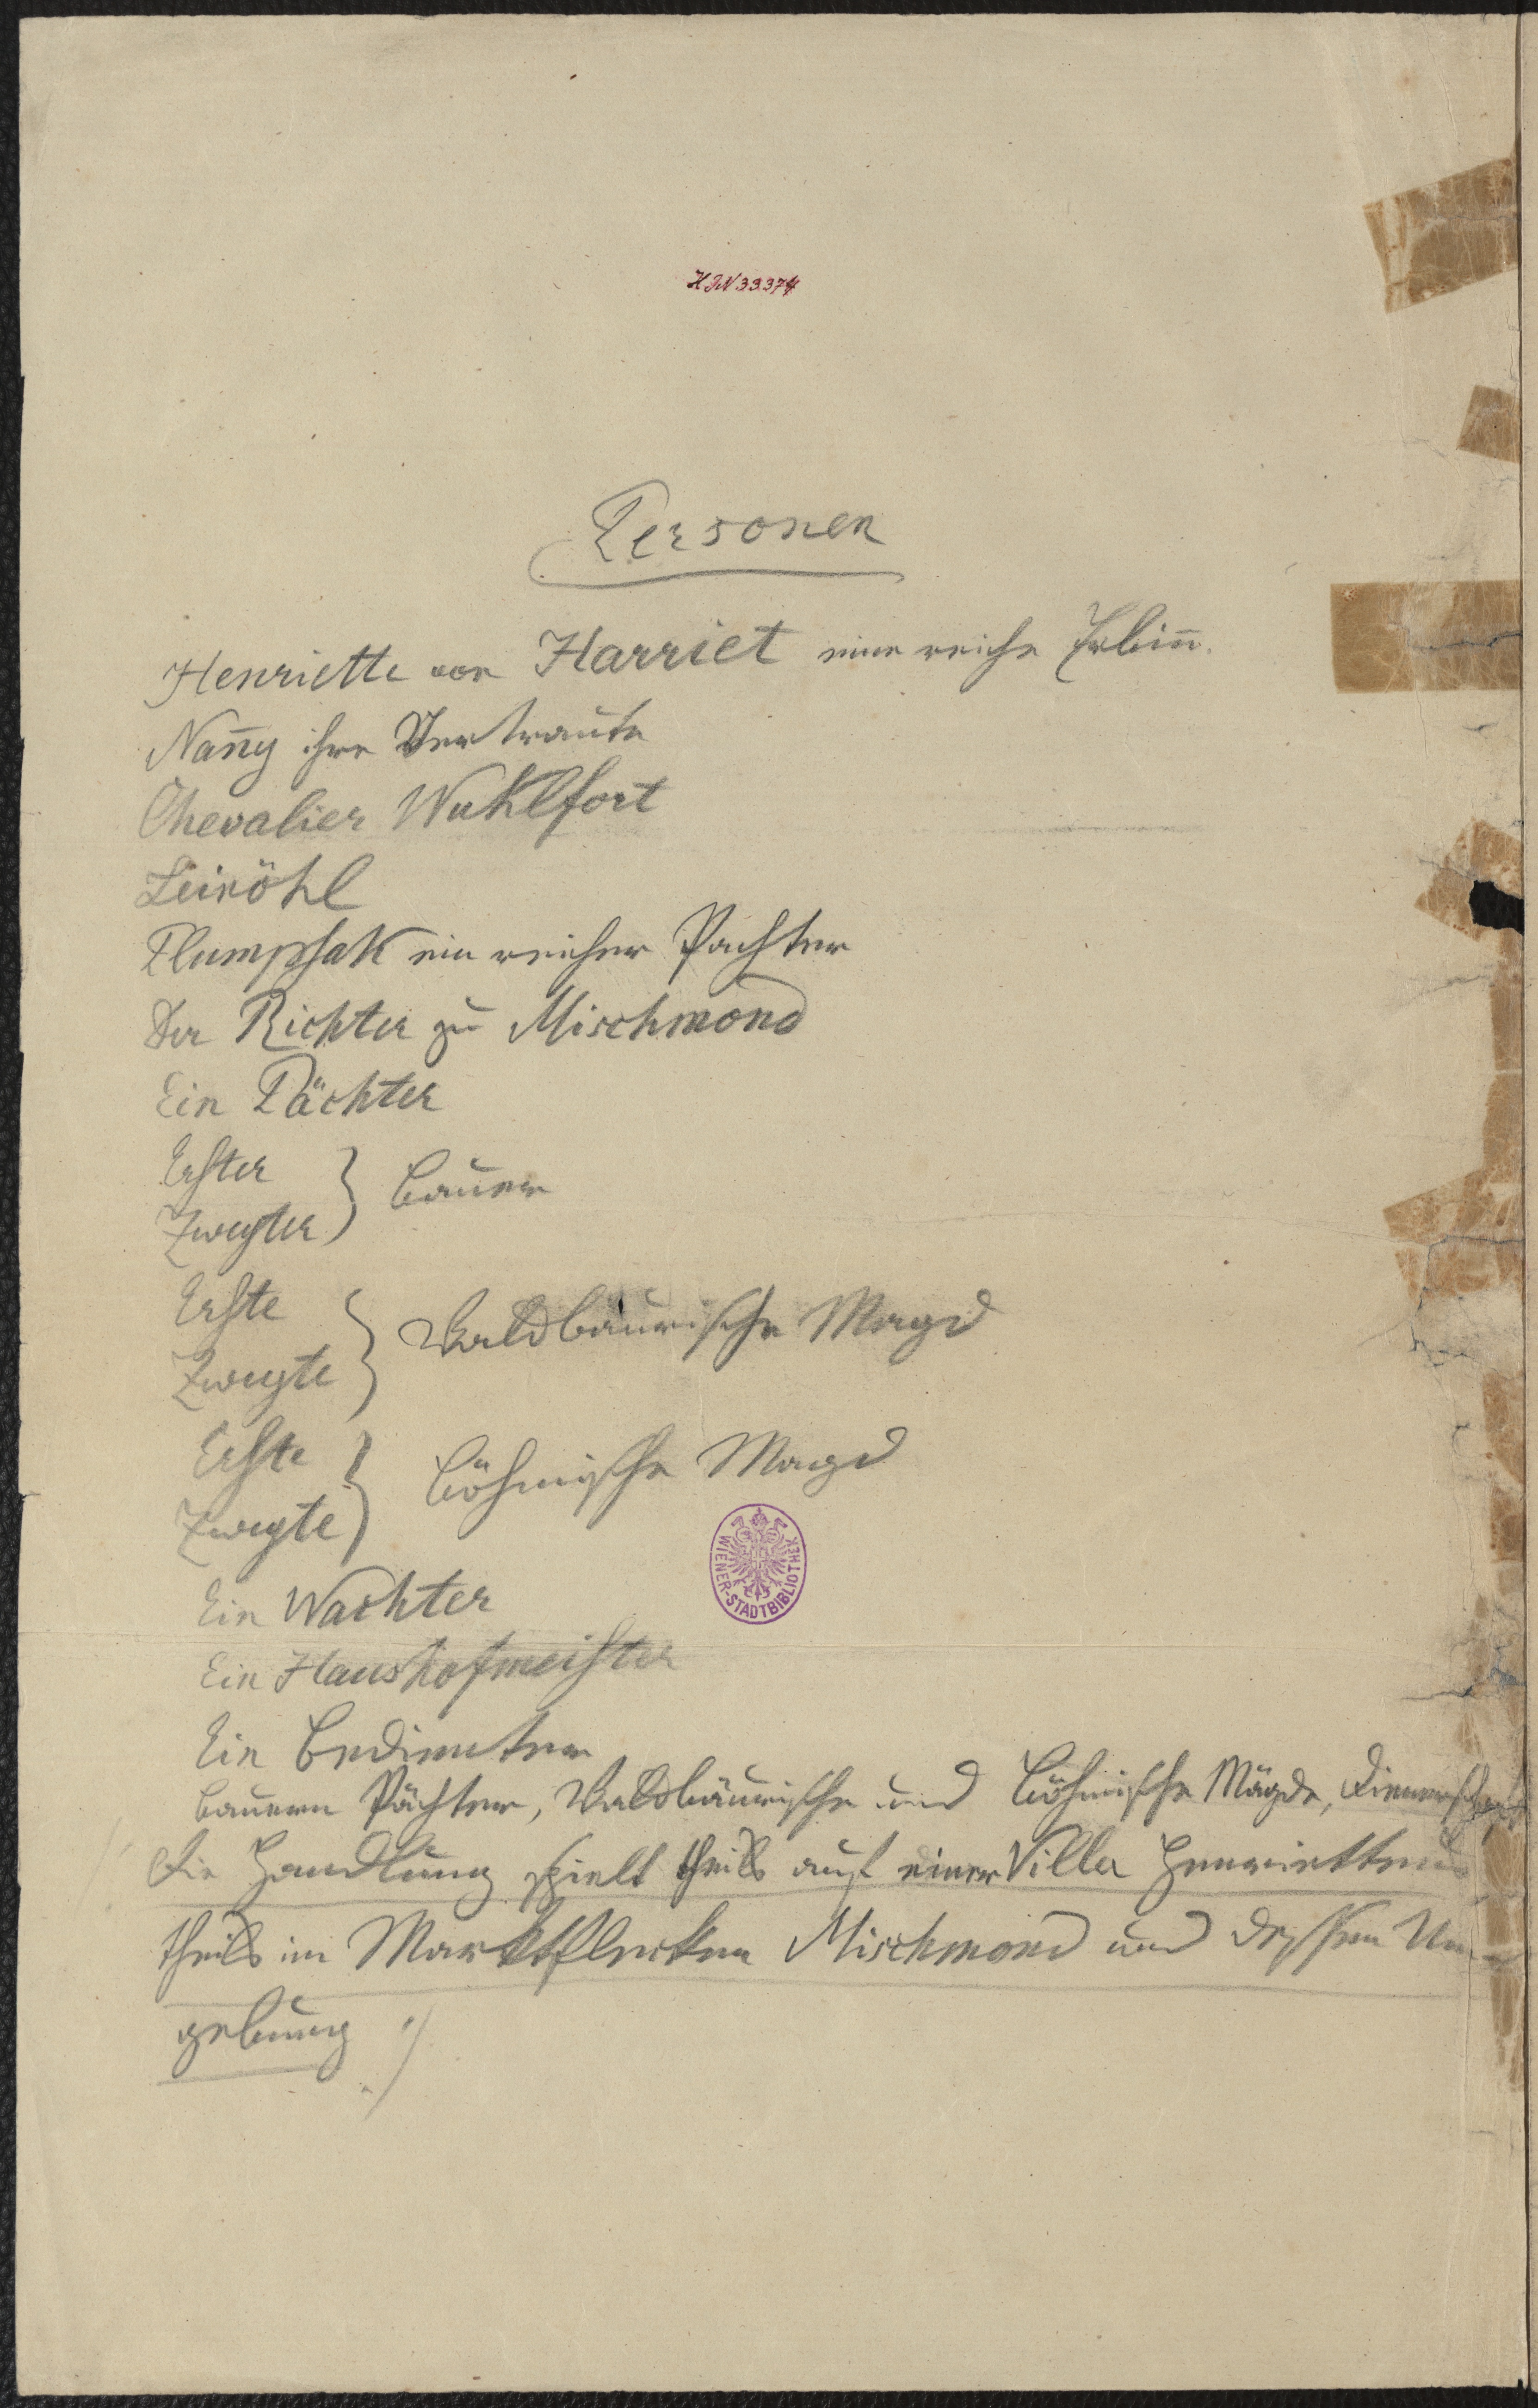 HIN 33374
Personen
Henriette von Harriet eine reiche Erbin̄.
Nan̄y ihre Vertraute
Chevalier Wuhlfort
Leinöhl
Plumpsak ein reicher Pachter
Der Richter zu Mischmond
Ein Pächter
Erster
Zweyter } Bauer
Erste
Zweyte } Waldbäurische Magd
Erste
Zweyte } Böhmische Magd
WIENER-STADTBIBLIOTHEK
Ein Wachter
Ein Haushofmeister
Ein Bedienter
Bauern Pächter, Waldbäurische und Böhmische Mägde, Dienerschaft
Die Handlung spielt theils auf einer Villa Henriettens
theils im Marktflecken Mischmond und dessen Um-
gebung